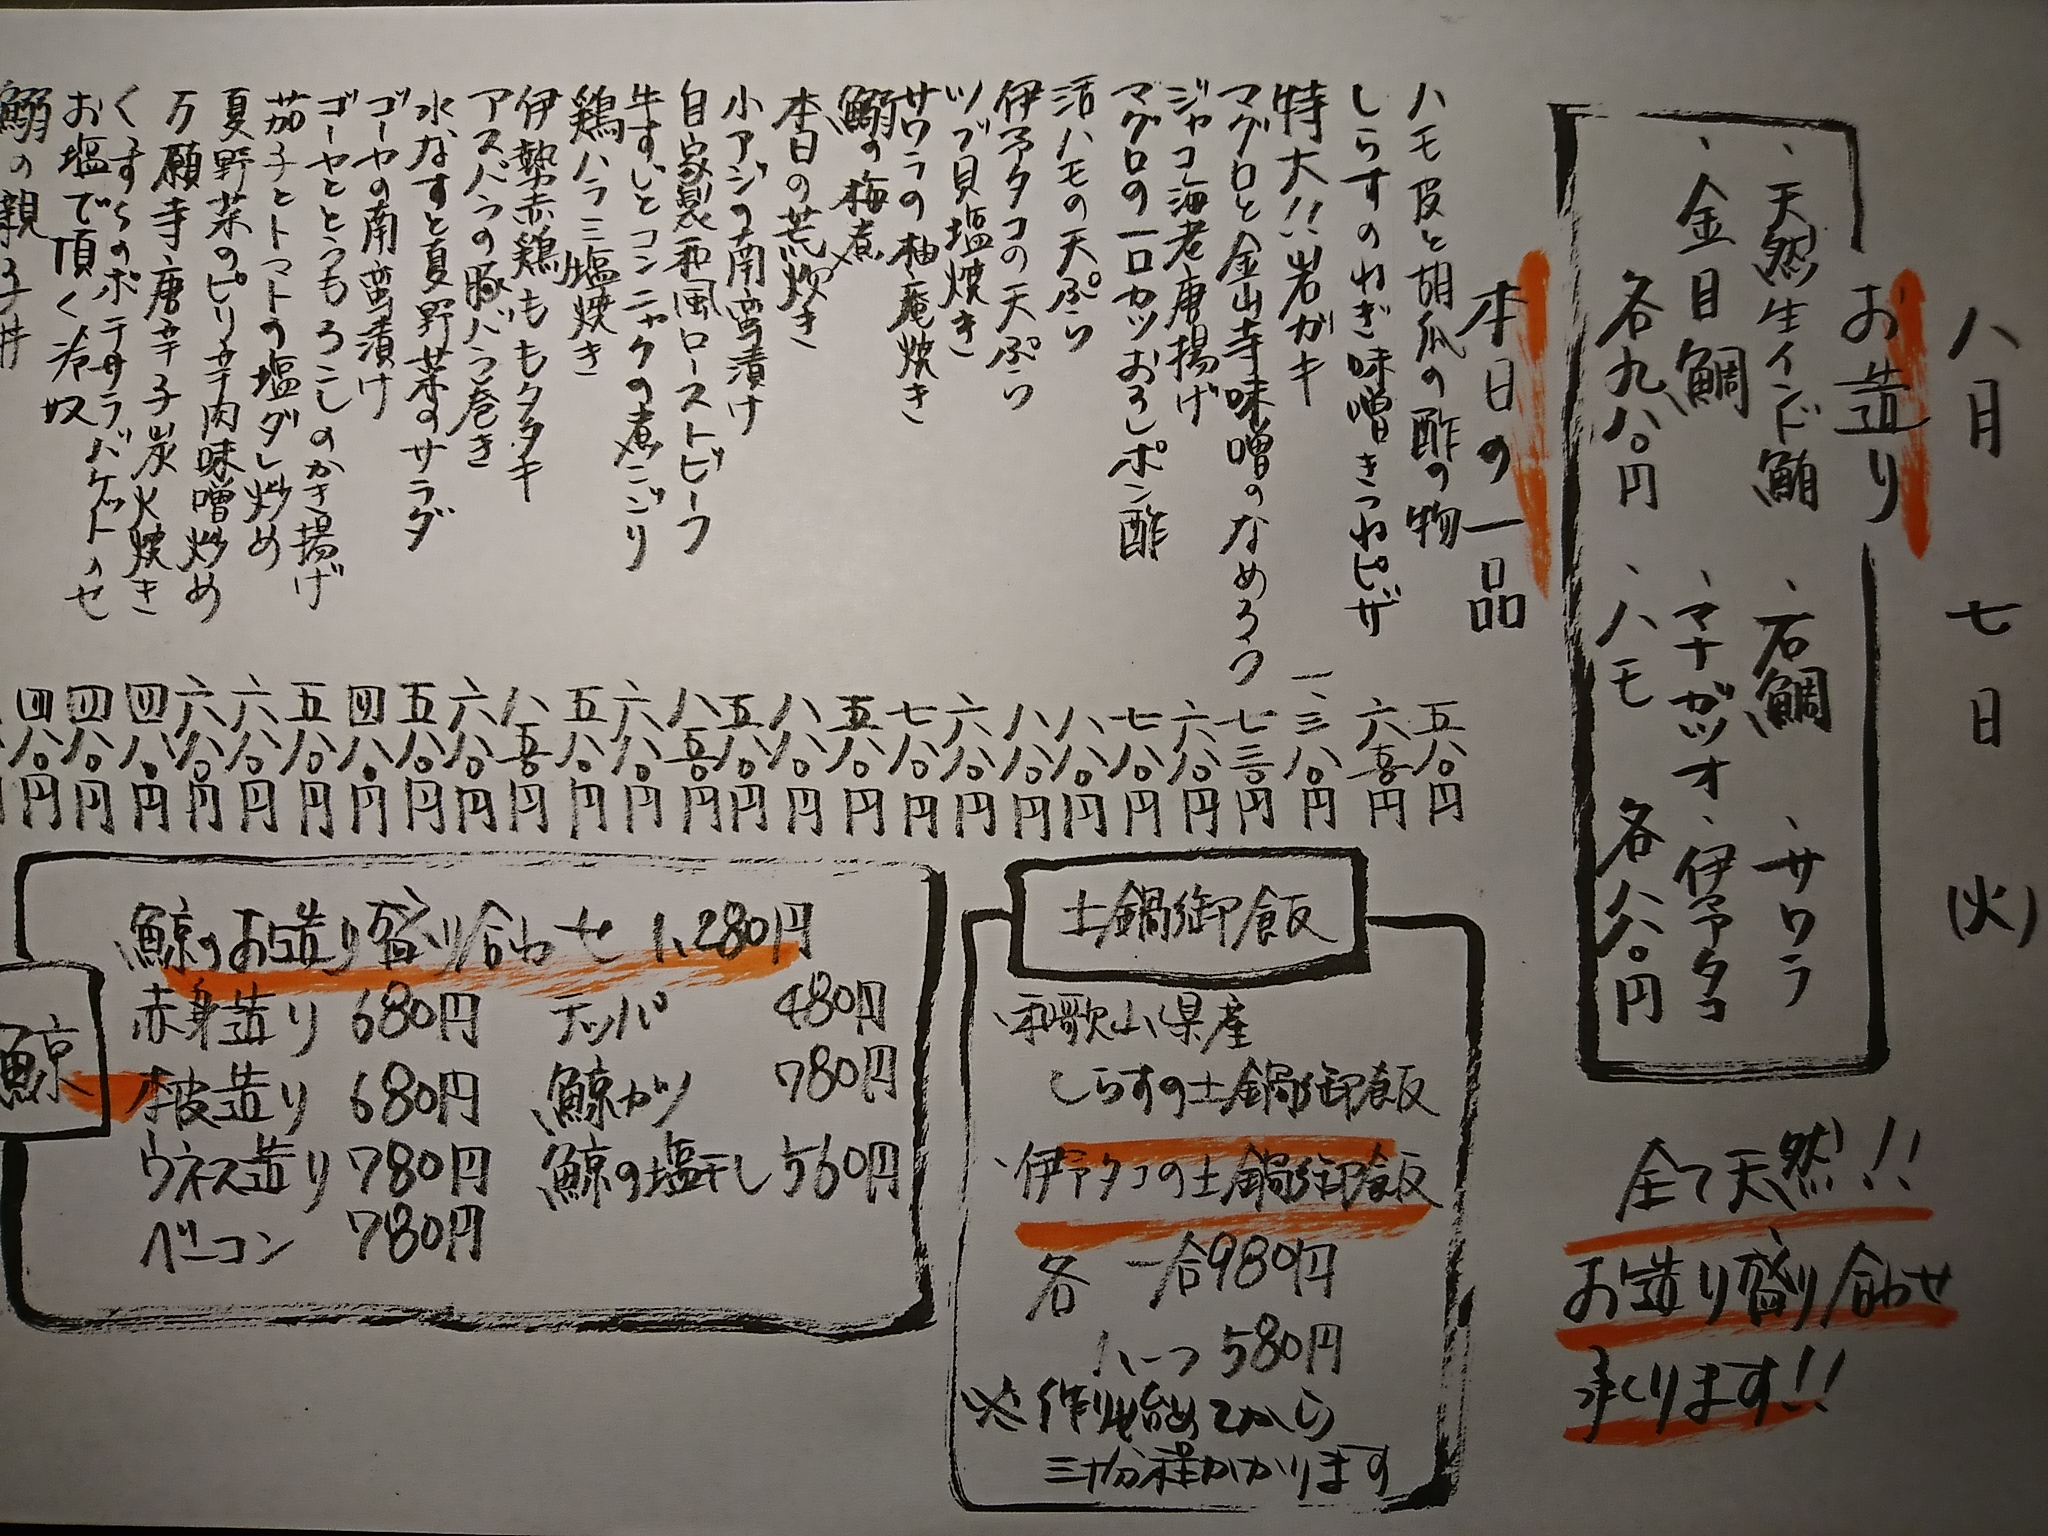 八月七日(火)
お造り
、天然生インド鮪 、石鯛 、サワラ
、金目鯛 、マナガツオ、伊予タコ
各九八〇円 、ハモ 各八八〇円
全て天然!!
お造り盛り合わせ
承ります!!
本日の一品
ハモ皮と胡瓜の酢の物 五八〇円
しらすのねぎ味噌きつねピザ 六五〇円
特大!!岩ガキ 一、三八〇円
マグロと金山寺味噌のなめろう 七三〇円
ジャコ海老唐揚げ 六八〇円
マグロの一口カツおろしポン酢 七八〇円
活ハモの天ぷら 八八〇円
伊予タコの天ぷら 八八〇円
ツブ貝塩焼き 六八〇円
サワラの柚庵焼き 七八〇円
鰯の梅煮 五八〇円
本日の荒炊き 八八〇円
小アジの南蛮漬け 五八〇円
自家製和風ローストビーフ 八五〇円
牛すじとコンニャクの煮こごり 六八〇円
鶏ハラミ塩焼き 五八〇円
伊勢赤鶏ももタタキ 八五〇円
アスパラの豚バラ巻き 六八〇円
水なすと夏野菜のサラダ 五八〇円
ゴーヤの南蛮漬け 四八〇円
ゴーヤととうもろこしのかき揚げ 五八〇円
茄子とトマトの塩ダレ炒め 六八〇円
夏野菜のピリ辛肉味噌炒め 六八〇円
万願寺唐辛子炭火焼き 四八〇円
くずらのポテサラバケットのせ 四八〇円
お塩で頂く冷奴 四八〇円
鰯の親子丼
土鍋御飯
、和歌山県産
しらすの土鍋御飯
、伊予タコの土鍋御飯
各 一合980円
ハーフ 580円
※作り始めてから
三十分程かかります
鯨
鯨のお造り盛り合わせ 1,280円
赤身造り 680円 テッパ 480円
本皮造り 680円 鯨カツ 780円
ウネス造り 780円 鯨の塩干し 560円
ベーコン 780円